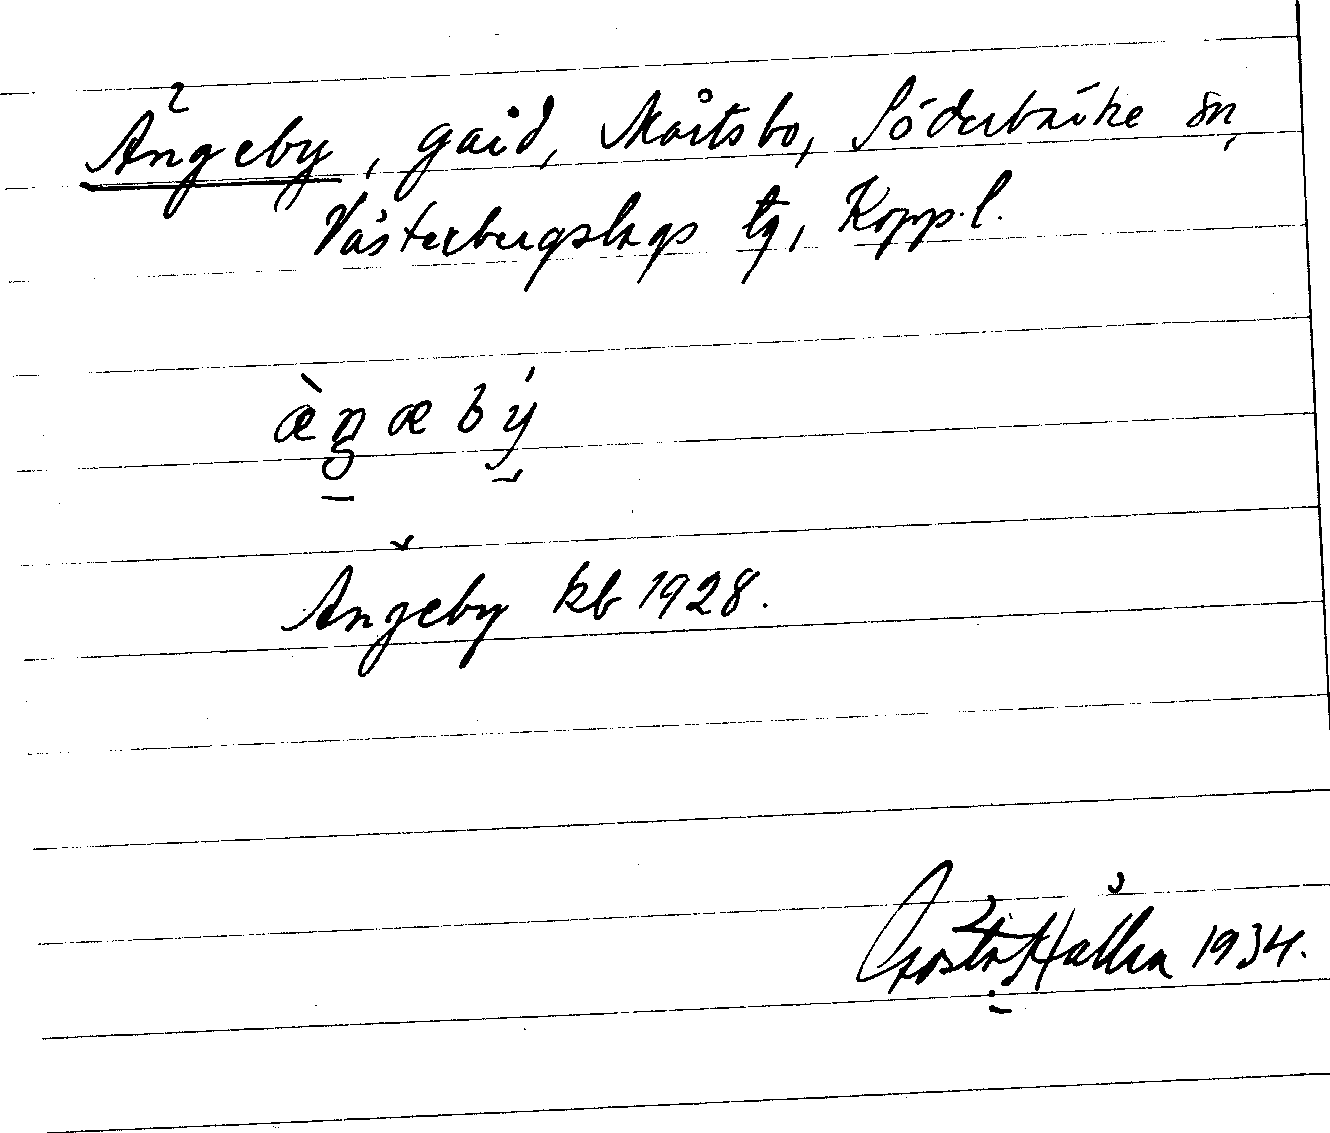 Ängeby, gård, Mårtsbo, Söderbärke sn,
Västerbergslags tg, Kopp. l.
æ̀ŋæbý
Ängeby kb 1928.
Gösta Hallen 1934.